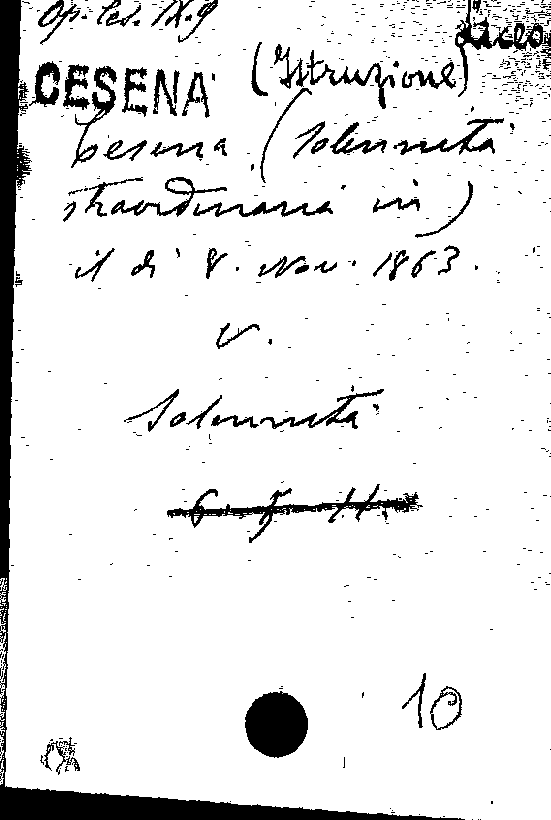 Op. Ces. IX. 9
Liceo
CESENA (Istruzione)
Cesena (Solennità
straordinaria in)
il dì 8. Nov. 1863.
V.
Solennità
6. 5. 11.
10